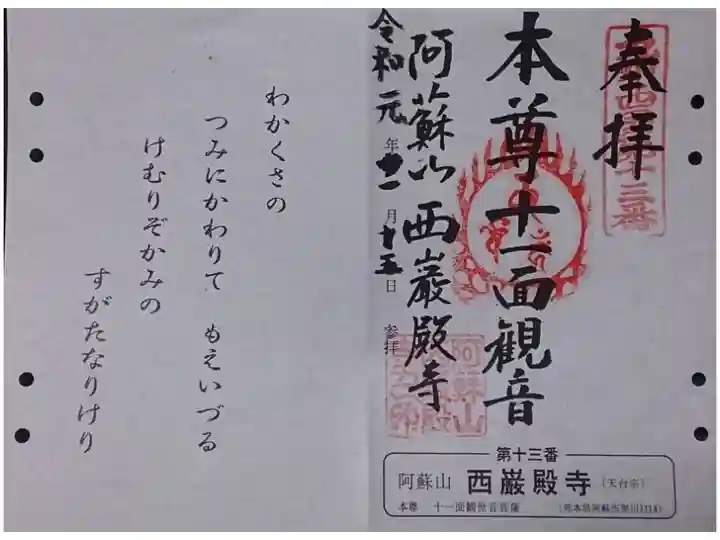 奉拝
本尊十一面観音
阿蘇山 西巌殿寺
令和元年十一月十五日 参拝
第十三番
阿蘇山 西巌殿寺 (天台宗)
本尊 十一面観世音菩薩
わかくさの
つみにかわりて もえいづる
けむりぞかみの
すがたなりけり